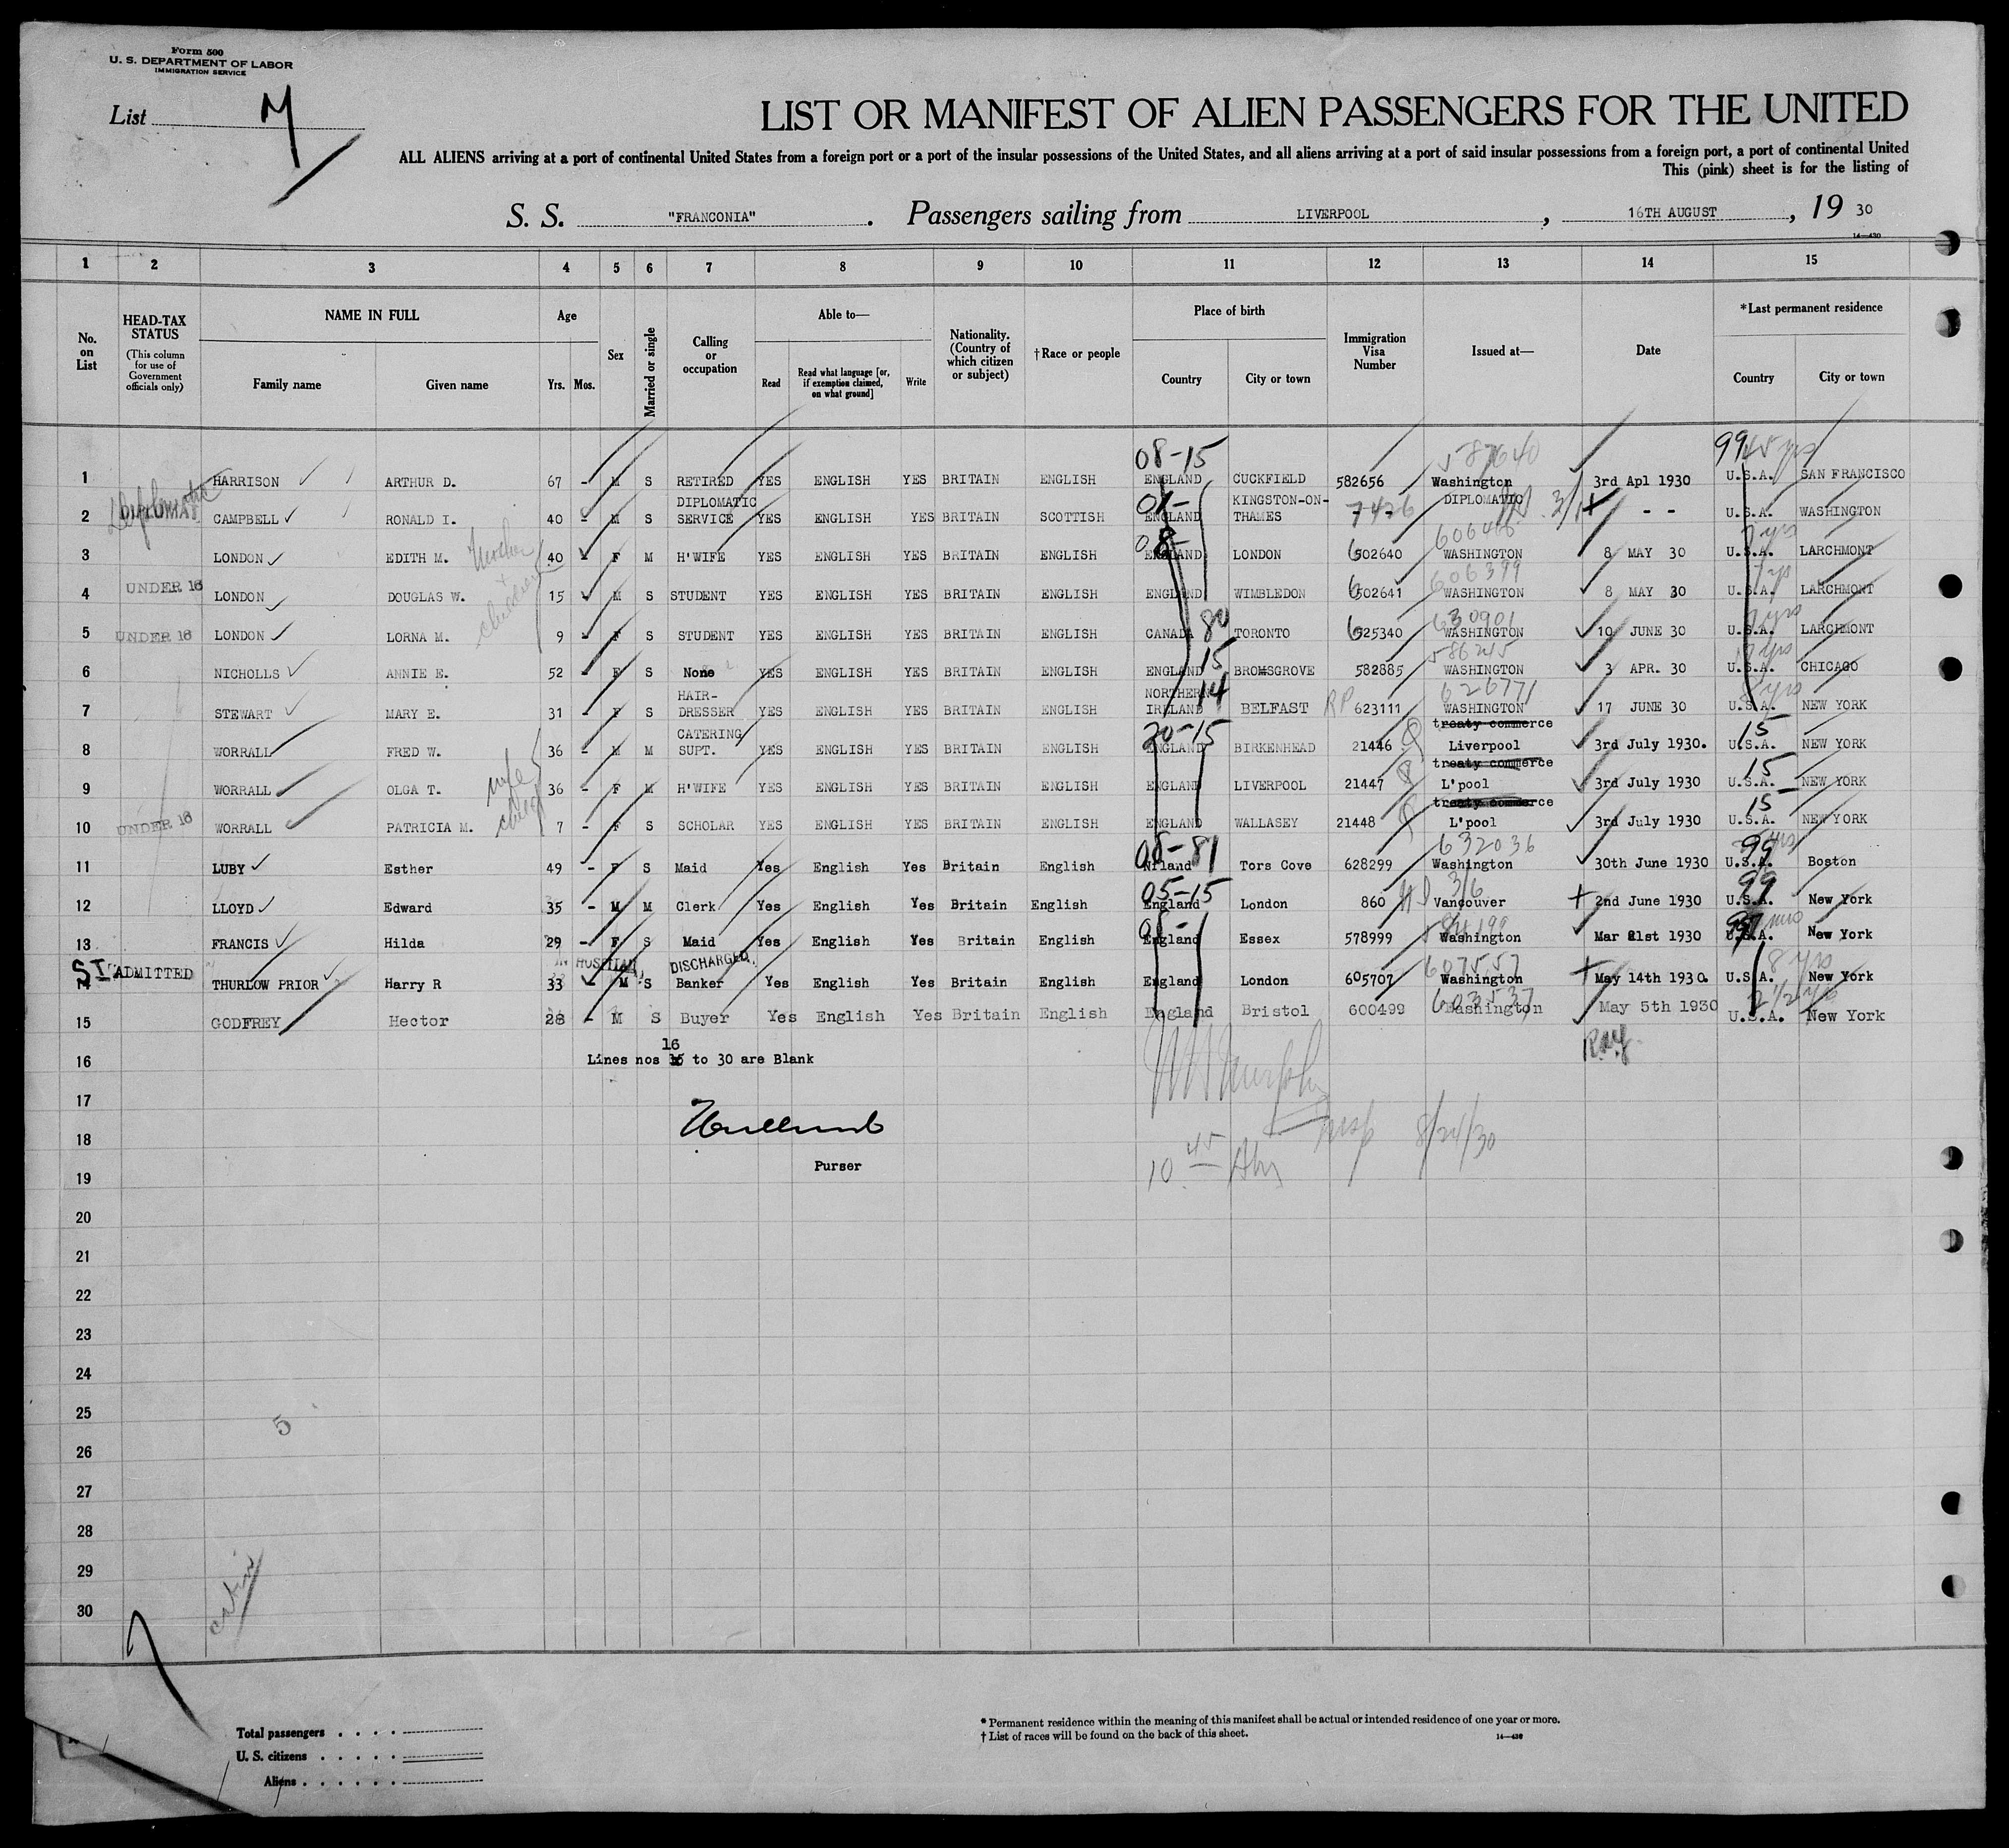 Form 500
U. S. DEPARTMENT OF LABOR
IMMIGRATION SERVICE
List M
LIST OR MANIFEST OF ALIEN PASSENGERS FOR THE UNITED
ALL ALIENS arriving at a port of continental United States from a foreign port or a port of the insular possessions of the United States, and all aliens arriving at a port of said insular possessions from a foreign port, a port of continental United
This (pink) sheet is for the listing of
S. S. "FRANCONIA". Passengers sailing from LIVERPOOL, 16TH AUGUST, 19 30
14—430
1 2 3 4 5 6 7 8 9 10 11 12 13 14 15
No. on List
HEAD-TAX STATUS (This column for use of Government officials only)
NAME IN FULL Family name Given name
Age Yrs. Mos.
Sex
Married or single
Calling or occupation
Able to— Read Read what language [or, if exemption claimed, on what ground] Write
Nationality. (Country of which citizen or subject)
†Race or people
Place of birth Country City or town
Immigration Visa Number
Issued at—
Date
*Last permanent residence Country City or town
08-15 587640 99 45 yrs
1 HARRISON ARTHUR D. 67 - M S RETIRED YES ENGLISH YES BRITAIN ENGLISH ENGLAND CUCKFIELD 582656 Washington 3rd Apl 1930 U.S.A. SAN FRANCISCO
2 Diplomatic DIPLOMAT CAMPBELL RONALD I. 40 - M S DIPLOMATIC SERVICE YES ENGLISH YES BRITAIN SCOTTISH 01- ENGLAND KINGSTON-ON-THAMES 7426 DIPLOMATIC - - U.S.A. WASHINGTON
3 LONDON EDITH M. Mother 40 - F M H'WIFE YES ENGLISH YES BRITAIN ENGLISH 08- ENGLAND LONDON 602640 WASHINGTON 8 MAY 30 7 yrs U.S.A. LARCHMONT
4 UNDER 16 LONDON DOUGLAS W. children 15 M S STUDENT YES ENGLISH YES BRITAIN ENGLISH ENGLAND WIMBLEDON 602641 606399 WASHINGTON 8 MAY 30 7 yrs U.S.A. LARCHMONT
5 UNDER 16 LONDON LORNA M. 9 - F S STUDENT YES ENGLISH YES BRITAIN ENGLISH CANADA 80 TORONTO 625340 630901 WASHINGTON 10 JUNE 30 7 yrs U.S.A. LARCHMONT
6 NICHOLLS ANNIE E. 52 - F S None YES ENGLISH YES BRITAIN ENGLISH ENGLAND 15 BROMSGROVE 582885 586245 WASHINGTON 3 APR. 30 U.S.A. CHICAGO
7 STEWART MARY E. 31 - F S HAIR-DRESSER YES ENGLISH YES BRITAIN ENGLISH NORTHERN IRELAND 14 BELFAST RP 623111 626771 WASHINGTON 17 JUNE 30 8 yrs U.S.A. NEW YORK
8 WORRALL FRED W. 36 - M M CATERING SUPT. YES ENGLISH YES BRITAIN ENGLISH 20-15 ENGLAND BIRKENHEAD 21446 treaty commerce Liverpool 3rd July 1930. 15 U.S.A. NEW YORK
9 WORRALL OLGA T. wife 36 - F M H'WIFE YES ENGLISH YES BRITAIN ENGLISH ENGLAND LIVERPOOL 21447 treaty commerce L'pool 3rd July 1930 15 U.S.A. NEW YORK
10 UNDER 16 WORRALL PATRICIA M. child 7 - F S SCHOLAR YES ENGLISH YES BRITAIN ENGLISH ENGLAND WALLASEY 21448 treaty commerce L'pool 3rd July 1930 15 U.S.A. NEW YORK
11 LUBY Esther 49 - F S Maid Yes English Yes Britain English 08-81 N'land Tors Cove 628299 632036 Washington 30th June 1930 99 U.S.A. Boston
12 LLOYD Edward 35 - M M Clerk Yes English Yes Britain English 05-15 England London 860 3/6 Vancouver 2nd June 1930 99 U.S.A. New York
13 FRANCIS Hilda 29 - F S Maid Yes English Yes Britain English England Essex 578999 Washington Mar 21st 1930 U.S.A. New York
14 SI ADMITTED THURLOW PRIOR Harry R 33 M S IN HOSPITAL DISCHARGED. Banker Yes English Yes Britain English England London 605707 607557 Washington May 14th 1930 8 yrs U.S.A. New York
15 GODFREY Hector 28 - M S Buyer Yes English Yes Britain English England Bristol 600499 603537 Washington May 5th 1930 2 1/2 yrs U.S.A. New York
16 Lines nos 16 to 30 are Blank
17
18
Insp 8/24/30
19 Purser
10 45 Am
20
21
22
23
24
25 5
26
27
28
29
30
Total passengers
U. S. citizens
Aliens
* Permanent residence within the meaning of this manifest shall be actual or intended residence of one year or more.
† List of races will be found on the back of this sheet.
14—430